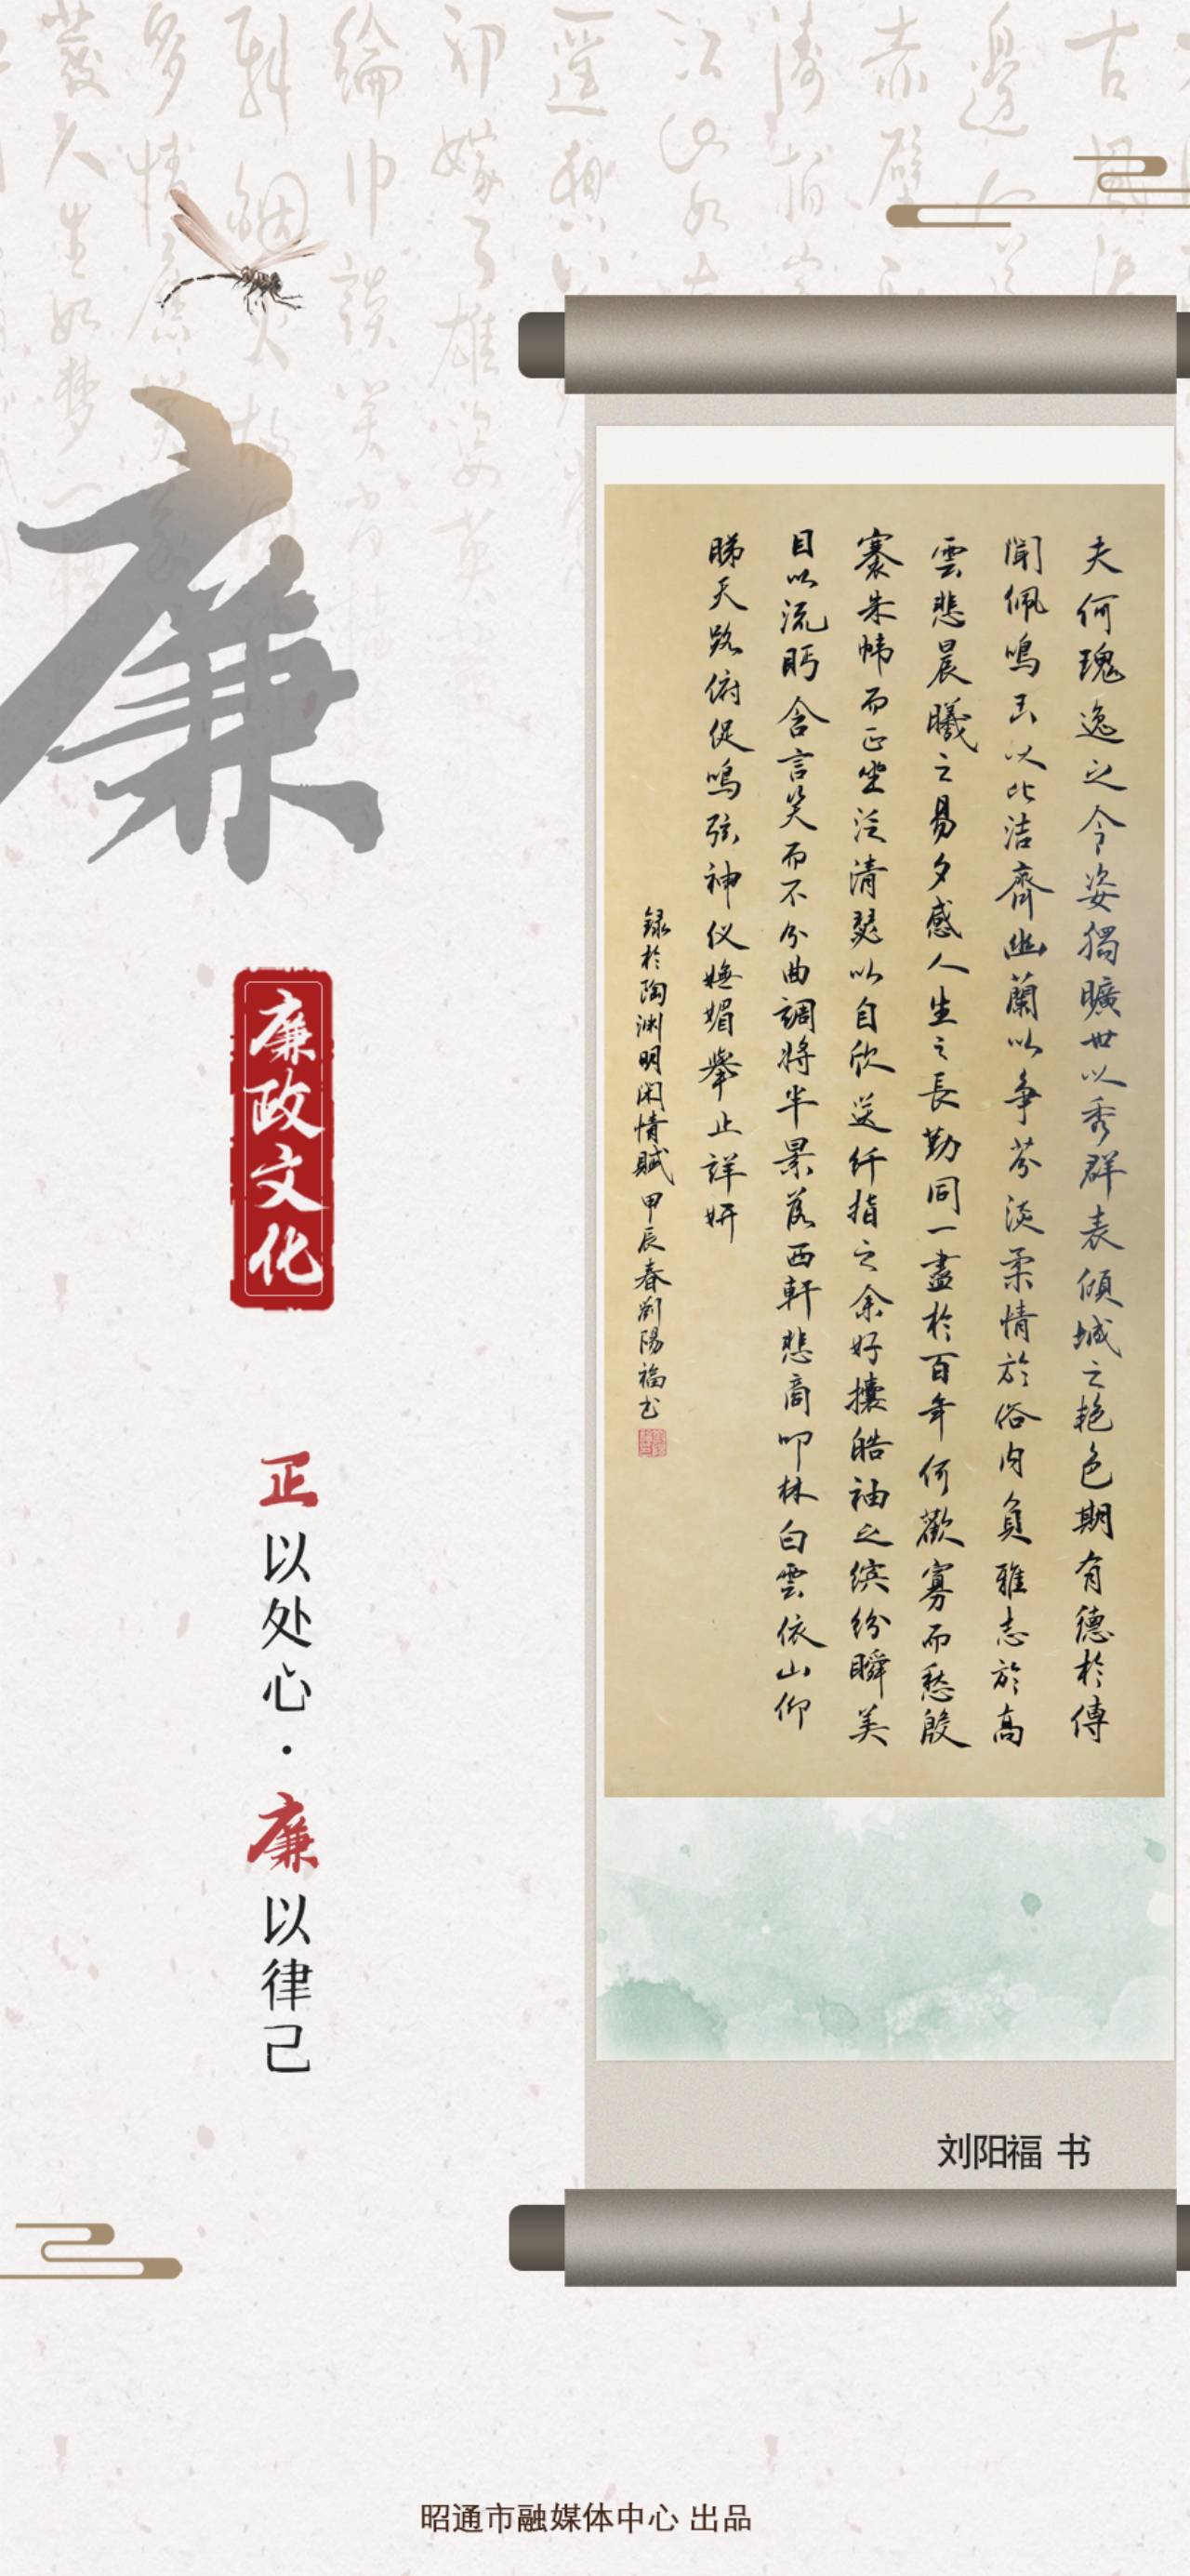 廉
廉政文化
正以处心·廉以律己
夫何瑰逸之令姿獨曠世以秀群表傾城之艳色期有德於傳
聞佩鳴玉以比洁齊幽蘭以争芬淡柔情於俗内負雅志於高
雲悲晨曦之易夕感人生之長勤同一盡於百年何歡寡而愁殷
褰朱帏而正坐泛清瑟以自欣送纤指之余好攘皓袖之缤纷瞬美
目以流眄含言笑而不分曲調将半景落西軒悲商叩林白雲依山仰
睇天路俯促鳴弦神仪嫵媚舉止詳妍
録於陶渊明闲情賦甲辰春劉陽福书
刘阳福 书
昭通市融媒体中心 出品